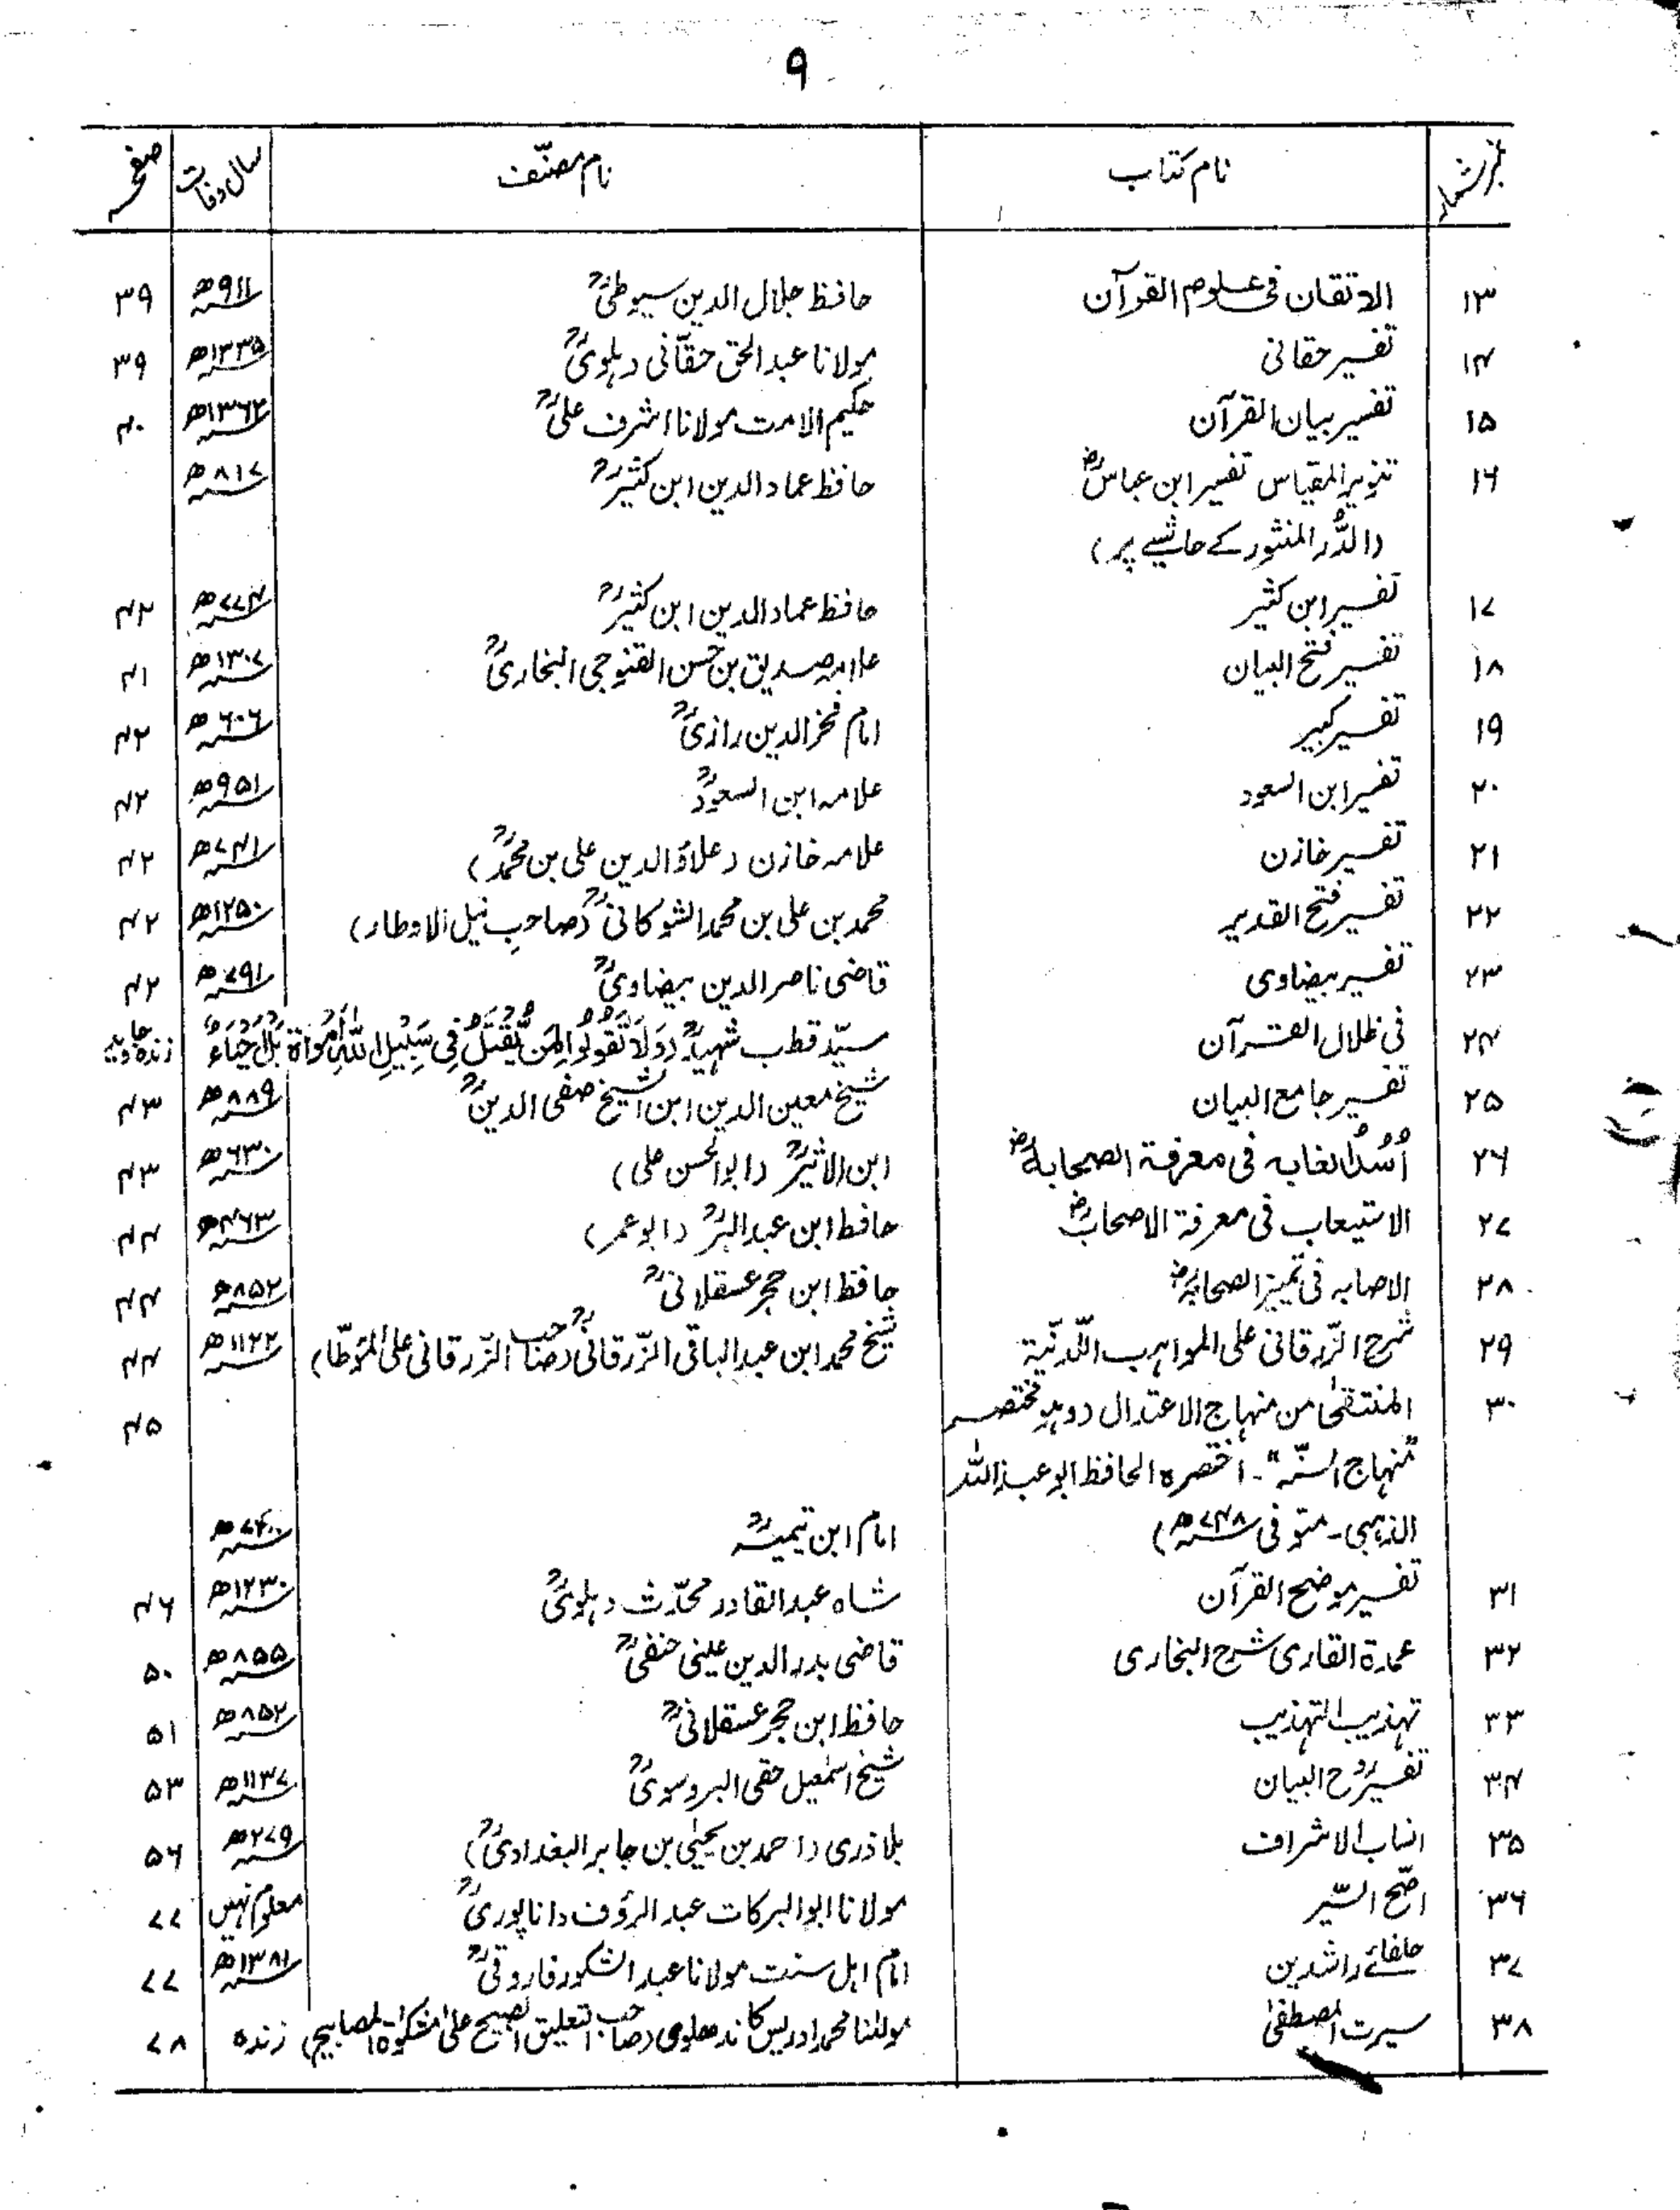 ۹
نمبر شمار نام کتاب نام مصنّف سال وفات صفحہ
۱۳ الاتقان فی علوم القرآن حافظ جلال الدین سیوطیؒ ۹۱۱ھ ۳۹
۱۴ تفسیر حقانی مولانا عبدالحق حقّانی دہلویؒ ۱۳۳۵ھ ۳۹
۱۵ تفسیر بیان القرآن حکیم الامت مولانا اشرف علیؒ ۱۳۶۲ھ ۴۰
۱۶ تنویر المقیاس تفسیر ابن عباسؓ حافظ عماد الدین ابن کثیرؒ ۸۱۷ھ
(الدُّر المنثور کے حاشیے پر)
۱۷ تفسیر ابن کثیر حافظ عماد الدین ابن کثیرؒ ۷۷۴ھ ۴۲
۱۸ تفسیر فتح البیان علامہ صدیق بن حسن القنوجی البخاریؒ ۱۳۰۷ھ ۴۱
۱۹ تفسیر کبیر امام فخر الدین رازیؒ ۶۰۶ھ ۴۲
۲۰ تفسیر ابن السعود علامہ ابن السعودؒ ۹۵۱ھ ۴۲
۲۱ تفسیر خازن علامہ خازن (علاؤ الدین علی بن محمدؒ) ۷۴۱ھ ۴۲
۲۲ تفسیر فتح القدیر محمد بن علی بن محمد الشوکانیؒ (صاحبِ نیل الاوطار) ۱۲۵۰ھ ۴۲
۲۳ تفسیر بیضاوی قاضی ناصر الدین بیضاویؒ ۷۹۱ھ ۴۲
۲۴ فی ظلال القرآن سیّد قطب شہیدؒ (وَلَا تَقُولُوا لِمَن يُّقْتَلُ فِي سَبِيلِ اللّٰهِ أَمْوَاتٌ بَلْ أَحْيَاءٌ زندہ جاوید
۲۵ تفسیر جامع البیان شیخ معین الدین ابن الشیخ صفی الدینؒ ۸۸۹ھ ۴۳
۲۶ اُسُدُ الغابہ فی معرفۃ الصحابہؓ ابن الاثیرؒ (ابوالحسن علی) ۶۳۰ھ ۴۳
۲۷ الاستیعاب فی معرفۃ الاصحابؓ حافظ ابن عبدالبرؒ (ابوعمر) ۴۶۳ھ ۴۴
۲۸ الاصابہ فی تمییز الصحابہؓ حافظ ابن حجر عسقلانیؒ ۸۵۲ھ ۴۴
۲۹ شرح الزّرقانی علی المواہب اللّدنّیۃ شیخ محمد ابن عبدالباقی الزّرقانیؒ (صاحب الزّرقانی علی المؤطّا) ۱۱۲۲ھ ۴۴
۳۰ المنتقیٰ من منہاج الاعتدال (وہو مختصر ۴۵
"منہاج السنّۃ"۔ اختصرہ الحافظ ابو عبداللہ
الذہبی۔ متوفی ۷۴۸ھ) امام ابن تیمیہؒ ۷۲۰ھ
۳۱ تفسیر موضح القرآن شاہ عبدالقادر محدّث دہلویؒ ۱۲۳۰ھ ۴۶
۳۲ عمدۃ القاری شرح البخاری قاضی بدر الدین عینی حنفیؒ ۸۵۵ھ ۵۰
۳۳ تہذیب التہذیب حافظ ابن حجر عسقلانیؒ ۸۵۲ھ ۵۱
۳۴ تفسیر رُوح البیان شیخ اسمٰعیل حقی البروسویؒ ۱۱۳۷ھ ۵۳
۳۵ انساب الاشراف بلاذری (احمد بن یحییٰ بن جابر البغدادیؒ) ۲۷۹ھ ۵۶
۳۶ اصّح السّیر مولانا ابوالبرکات عبدالرؤف داناپوریؒ معلوم نہیں ۷۷
۳۷ خلفائے راشدین امام اہل سنت مولانا عبدالشکور فاروقیؒ ۱۳۸۱ھ ۷۷
۳۸ سیرت المصطفیٰ مولٰنا محمد ادریس کاندھلوی (صاحب التعلیق الصبیح علیٰ مشکوٰۃ المصابیح) زندہ ۷۸